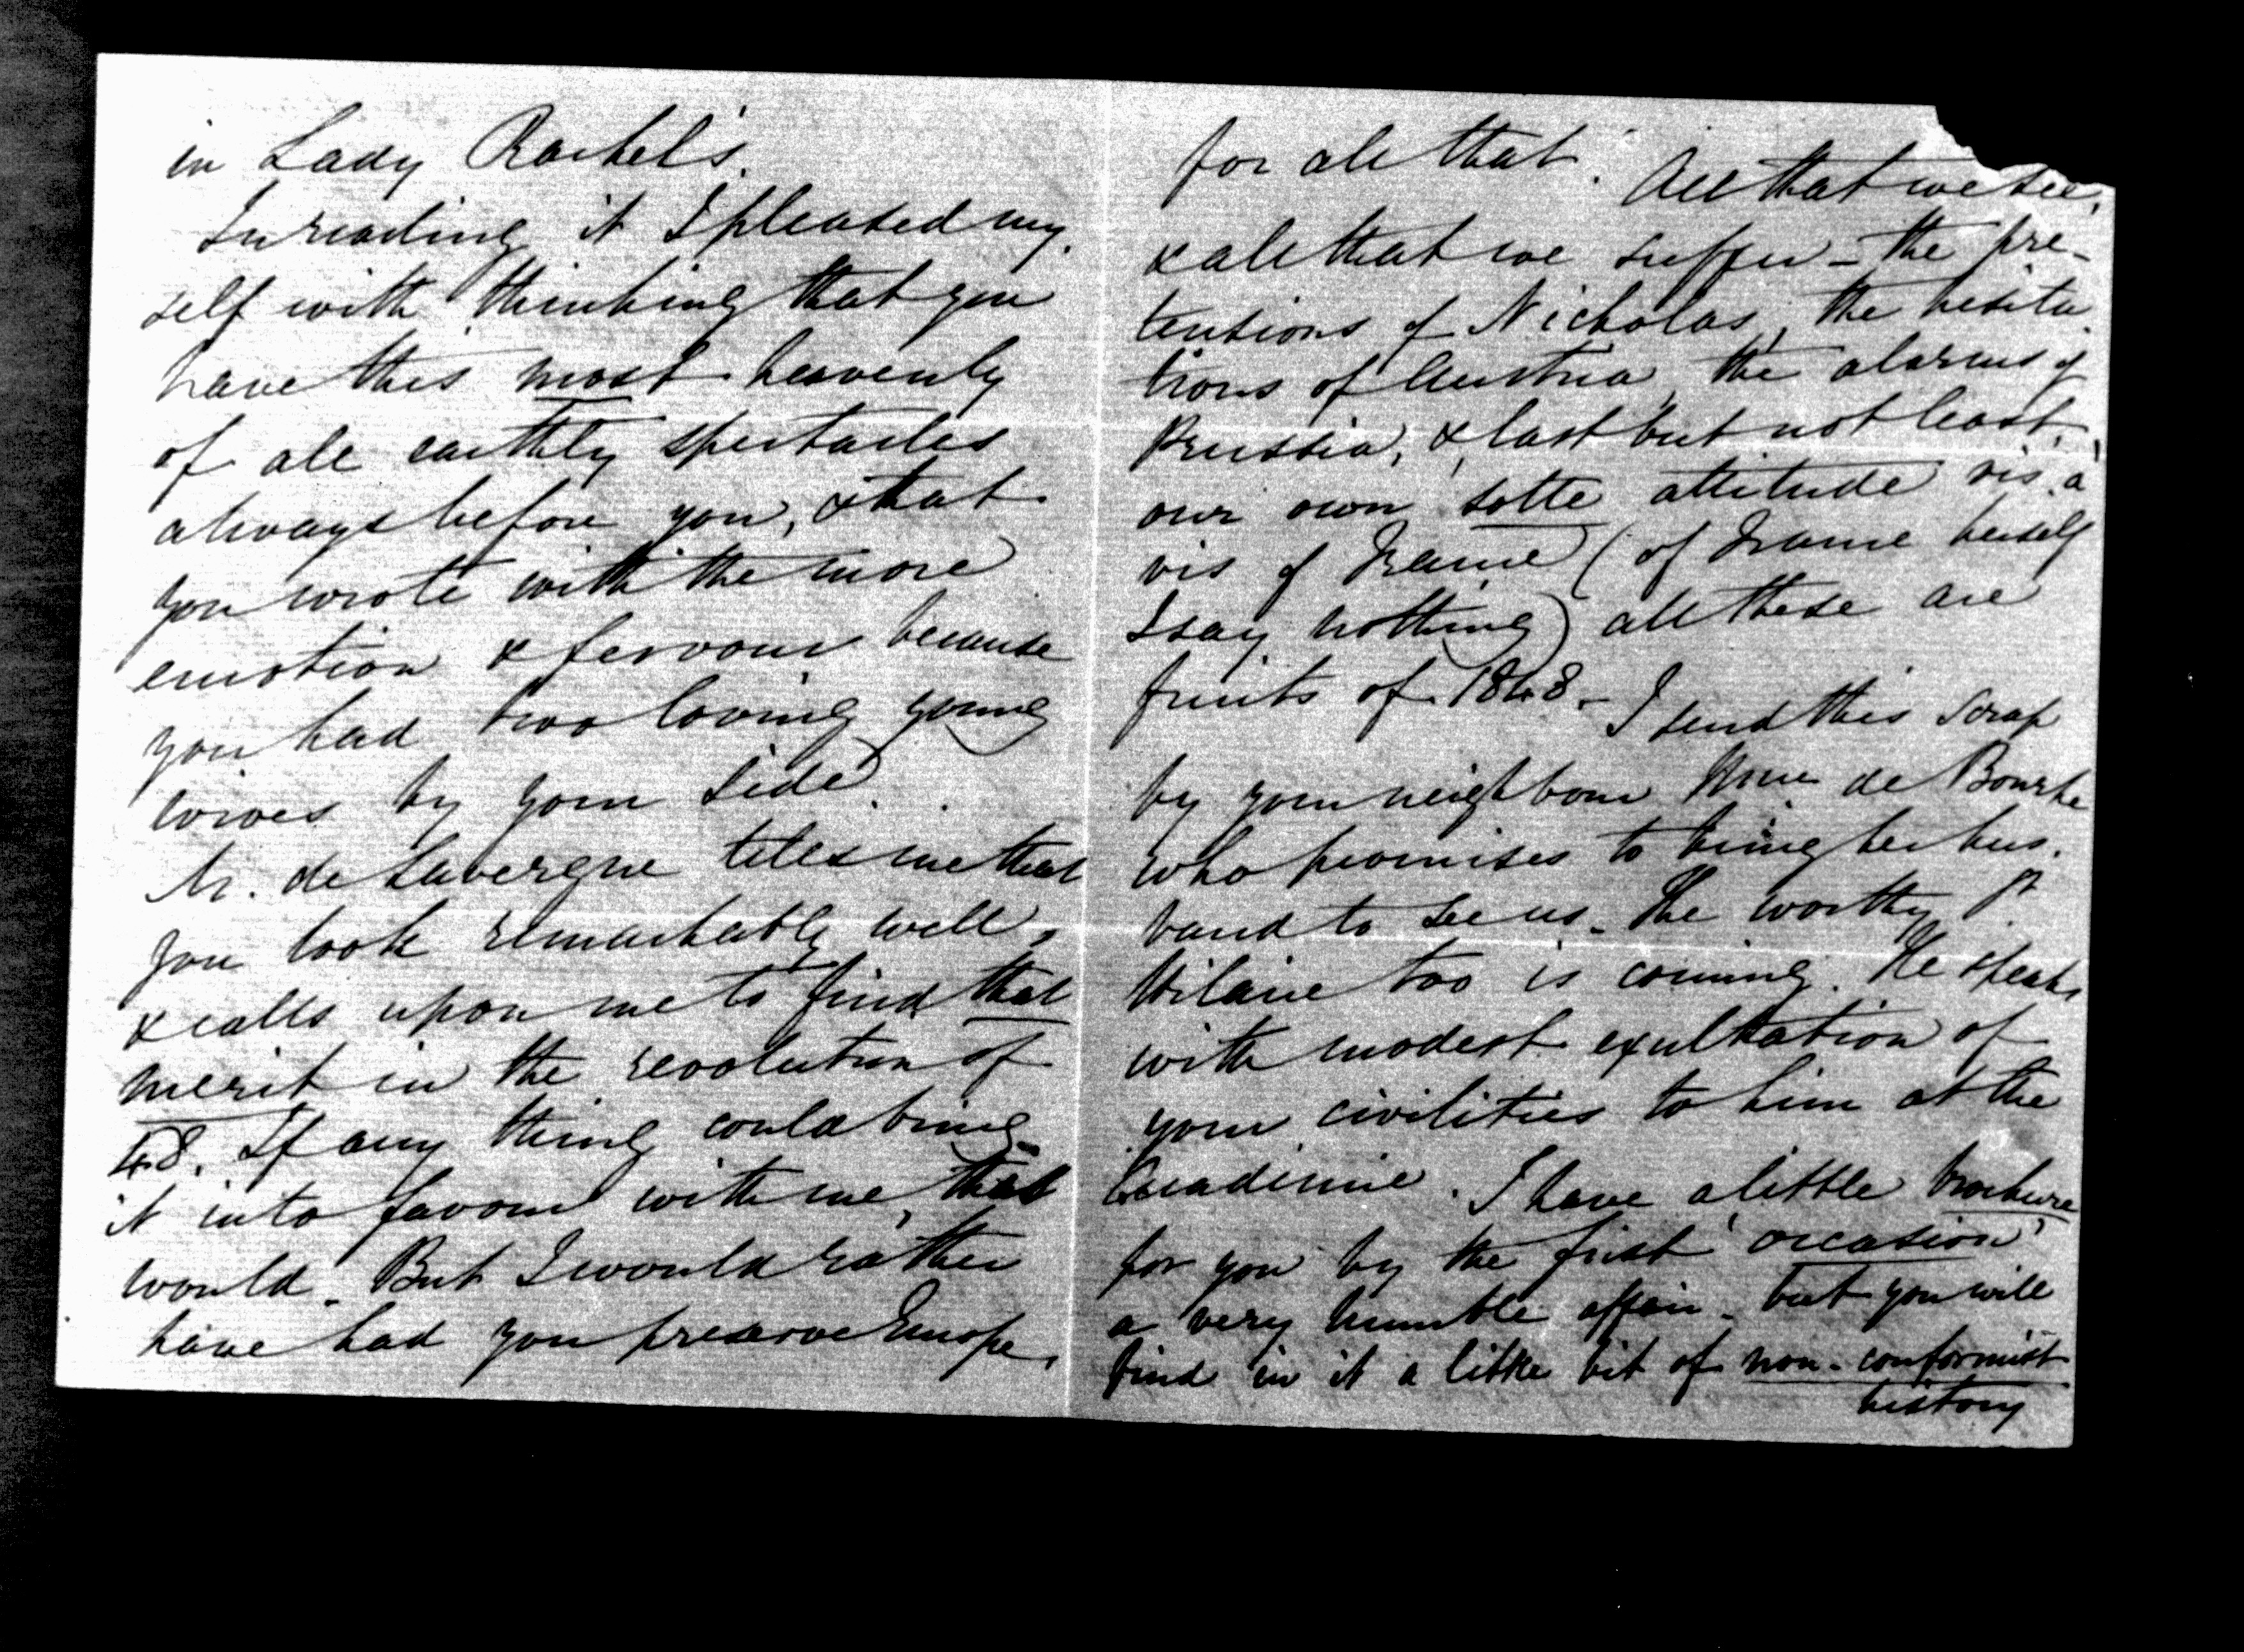 in Lady Rachel's.
In reading it I pleased my-
self with thinking that you
have this most heavenly
of all earthly spectacles
always before you, & that
you wrote with the more
emotion & fervour because
you had two loving young
wives by your side.
M. de Lavergne tells me that
you look remarkably well,
& calls upon me to find that
merit in the revolution of
48. If any thing could bring
it into favour with me, that
would. But I would rather
have had you preserve Europe,
for all that. All that we see,
& all that we suffer – the pre-
tentions of Nicholas, the hesita-
tions of Austria, the alarms of
Prussia, & last but not least,
our own sotte attitude vis à
vis of France (of France herself
I say nothing) all these are
fruits of 1848 – I send this scrap
by your neighbour Mme de Bourke
who promises to bring her hus-
band to see us. The worthy St
Hilaire too is coming. He speaks
with modest exultation of
your civilities to him at the
Academie. I have a little brochure
for you by the first 'occasion'
a very humble affair – but you will
find in it a little bit of non-conformist
history